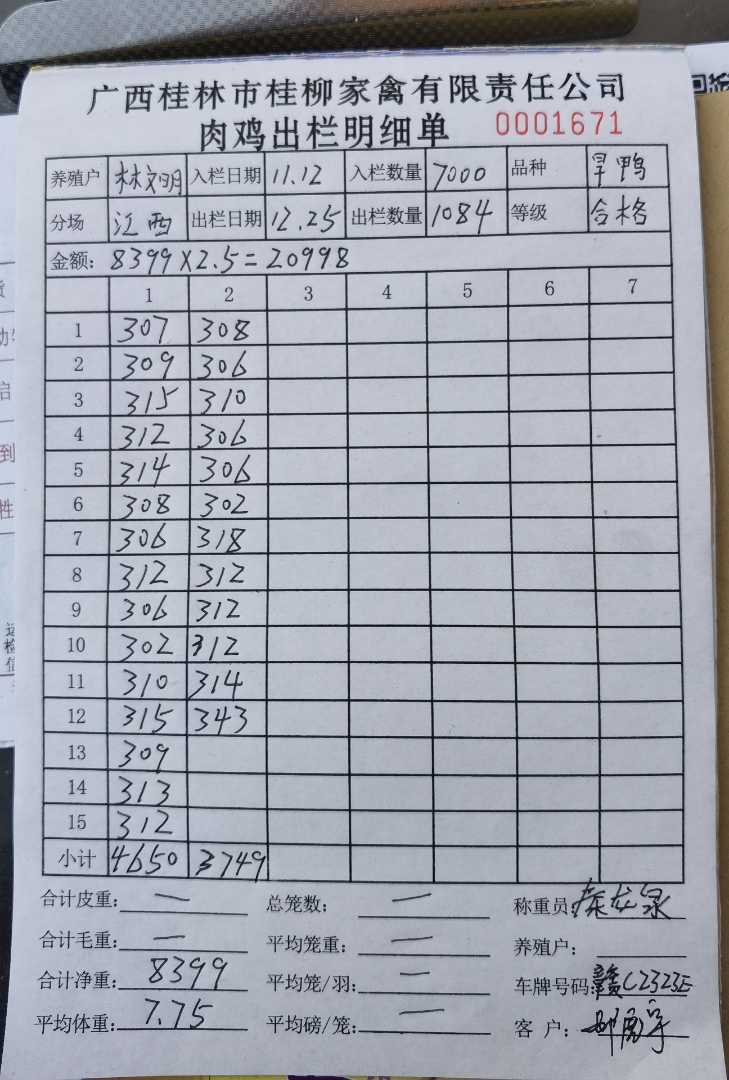 广西桂林市桂柳家禽有限责任公司
肉鸡出栏明细单 0001671
养殖户 林文明 入栏日期 11.12 入栏数量 7000 品种 旱鸭
分场 江西 出栏日期 12.25 出栏数量 1084 等级 合格
金额: 8399×2.5=20998
1 2 3 4 5 6 7
1 307 308
2 309 306
3 315 310
4 312 306
5 314 306
6 308 302
7 306 318
8 312 312
9 306 312
10 302 312
11 310 314
12 315 343
13 309
14 313
15 312
小计 4650 3749
合计皮重: 一 总笼数: 一 称重员:
合计毛重: 一 平均笼重: 一 养殖户:
合计净重: 8399 平均笼/羽: 一 车牌号码: 赣C2323E
平均体重: 7.75 平均磅/笼: 一 客户: